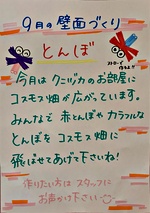 9月の壁面づくり
とんぼ
今月は クニヅカのお部屋に
コスモス畑が広がっています。
みんなで 赤とんぼや カラフルな
とんぼを コスモス畑に
飛ばせてあげて下さいね!
作りたい方は スタッフに
お声かけ下さい